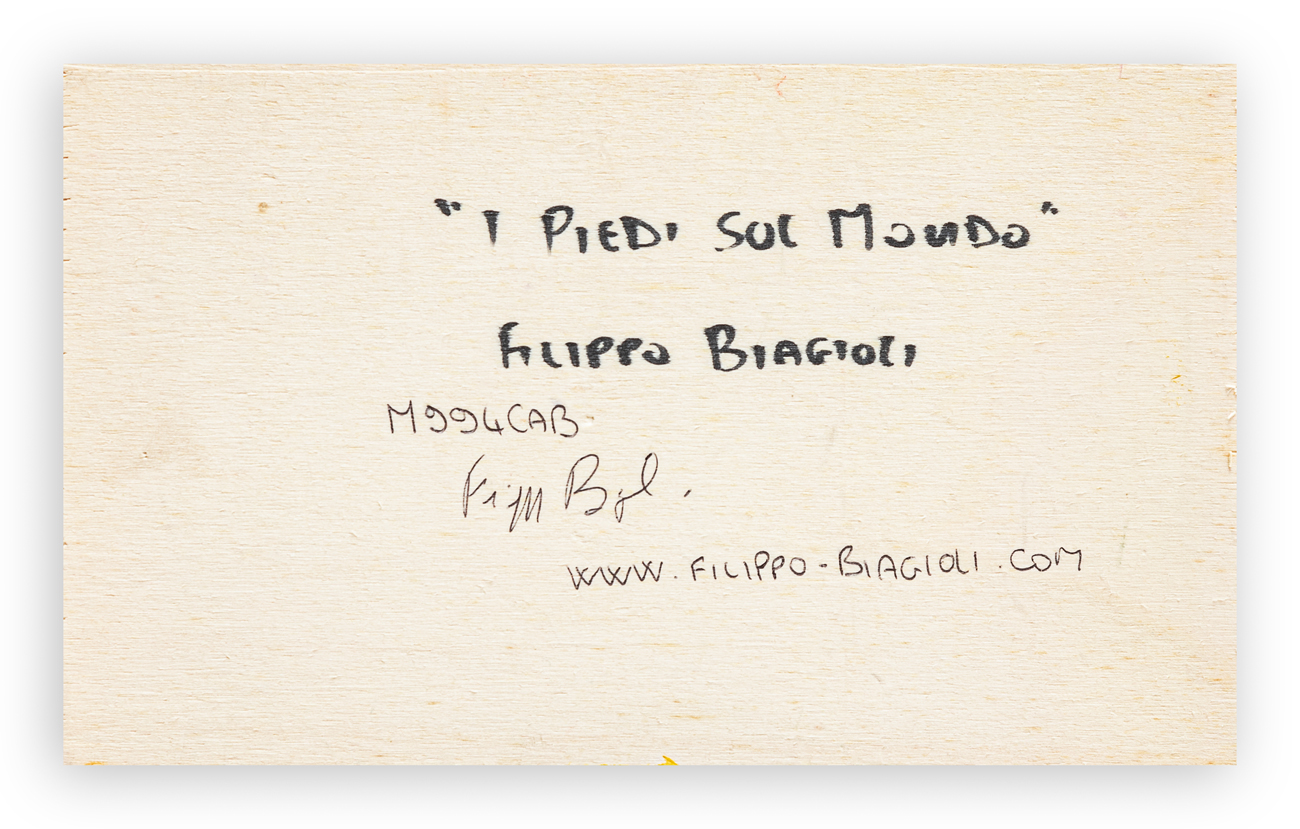 "I PIEDI SUL MONDO"
FILIPPO BIAGIOLI
M994CAB
WWW.FILIPPO-BIAGIOLI.COM